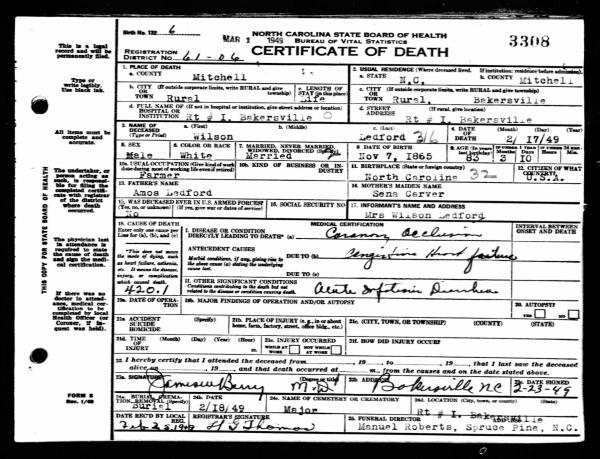 Birth No. 132 6
MAR 1 1949
NORTH CAROLINA STATE BOARD OF HEALTH
BUREAU OF VITAL STATISTICS
CERTIFICATE OF DEATH
3308
REGISTRATION DISTRICT No. 61-06
This is a legal record and will be permanently filed.
Type or write legibly. Use black ink.
All items must be complete and accurate.
THIS COPY FOR STATE BOARD OF HEALTH
1. PLACE OF DEATH
a. COUNTY Mitchell
2. USUAL RESIDENCE (Where deceased lived. If institution: residence before admission).
a. STATE N.C. b. COUNTY Mitchell
b. CITY (If outside corporate limits, write RURAL and give township) OR TOWN Rural
c. LENGTH OF STAY (in this place) Life
c. CITY (If outside corporate limits, write RURAL and give township) OR TOWN Rural. Bakersville
d. FULL NAME OF (If not in hospital or institution, give street address or location) HOSPITAL OR INSTITUTION Rt # I. Bakersville
d. STREET ADDRESS (If rural, give location) Rt # I. Bakersville
3. NAME OF DECEASED (Type or Print) a. (First) Wilson b. (Middle) c. (Last) Ledford 316
4. DATE OF DEATH (Month) (Day) (Year) 2/ 17/49
5. SEX Male
6. COLOR OR RACE White
7. MARRIED, NEVER MARRIED, WIDOWED, DIVORCED (Specify) Married
8. DATE OF BIRTH Nov 7. 1865
9. AGE (In years last birthday) 83 3 10
10a. USUAL OCCUPATION (Give kind of work done during most of working life, even if retired) Farmer
10b. KIND OF BUSINESS OR INDUSTRY
11. BIRTHPLACE (State or foreign country) North Carolina 32
12. CITIZEN OF WHAT COUNTRY? U.S.A.
The undertaker, or person acting as such, is responsible for filing the completed certificate with registrar of the district where death occurred.
13. FATHER'S NAME Amos Ledford
14. MOTHER'S MAIDEN NAME Sena Carver
15. WAS DECEASED EVER IN U.S. ARMED FORCES? (Yes, no, or unknown) (If yes, give war or dates of service) No
16. SOCIAL SECURITY NO.
17. INFORMANT'S NAME AND ADDRESS Mrs Wilson Ledford
The physician last in attendance is required to state the cause of death and sign the medical certification.
18. CAUSE OF DEATH Enter only one cause per line for (a), (b), and (c)
MEDICAL CERTIFICATION
INTERVAL BETWEEN ONSET AND DEATH
I. DISEASE OR CONDITION DIRECTLY LEADING TO DEATH* (a)
*This does not mean the mode of dying, such as heart failure, asthenia, etc. It means the disease, injury, or complication which caused death.
ANTECEDENT CAUSES
Morbid conditions, if any, giving rise to the above cause (a) stating the underlying cause last.
DUE TO (b) Heart failure
DUE TO (c)
II. OTHER SIGNIFICANT CONDITIONS
Conditions contributing to the death but not related to the disease or condition causing death.
420.1
If there was no doctor in attendance, medical certification to be completed by local Health Officer (or Coroner, if inquest was held).
19a. DATE OF OPERATION
19b. MAJOR FINDINGS OF OPERATION AND/OR AUTOPSY
20. AUTOPSY? YES NO
21a. ACCIDENT SUICIDE HOMICIDE (Specify)
21b. PLACE OF INJURY (e. g., in or about home, farm, factory, street, office bldg., etc.)
21c. (CITY, TOWN, OR TOWNSHIP) (COUNTY) (STATE)
21d. TIME OF INJURY (Month) (Day) (Year) (Hour)
21e. INJURY OCCURRED WHILE AT WORK NOT WHILE AT WORK
21f. HOW DID INJURY OCCUR?
22. I hereby certify that I attended the deceased from 19 to 19 that I last saw the deceased
alive on 19 and that death occurred at m., from the causes and on the date stated above.
23a. SIGNATURE Berry (Degree or title) M.D.
23b. ADDRESS Bakersville NC
23c. DATE SIGNED 2-23-49
24a. BURIAL, CREMATION, REMOVAL (Specify) Burial
24b. DATE 2/18/49
24c. NAME OF CEMETERY OR CREMATORY Major
24d. LOCATION (City, town, or county) (State) Rt # I. Bakersville
FORM 8
Rev. 1/49
DATE REC'D BY LOCAL REG.
REGISTRAR'S SIGNATURE Thomas
25. FUNERAL DIRECTOR ADDRESS
Manuel Roberts, Spruce Pine, N.C.